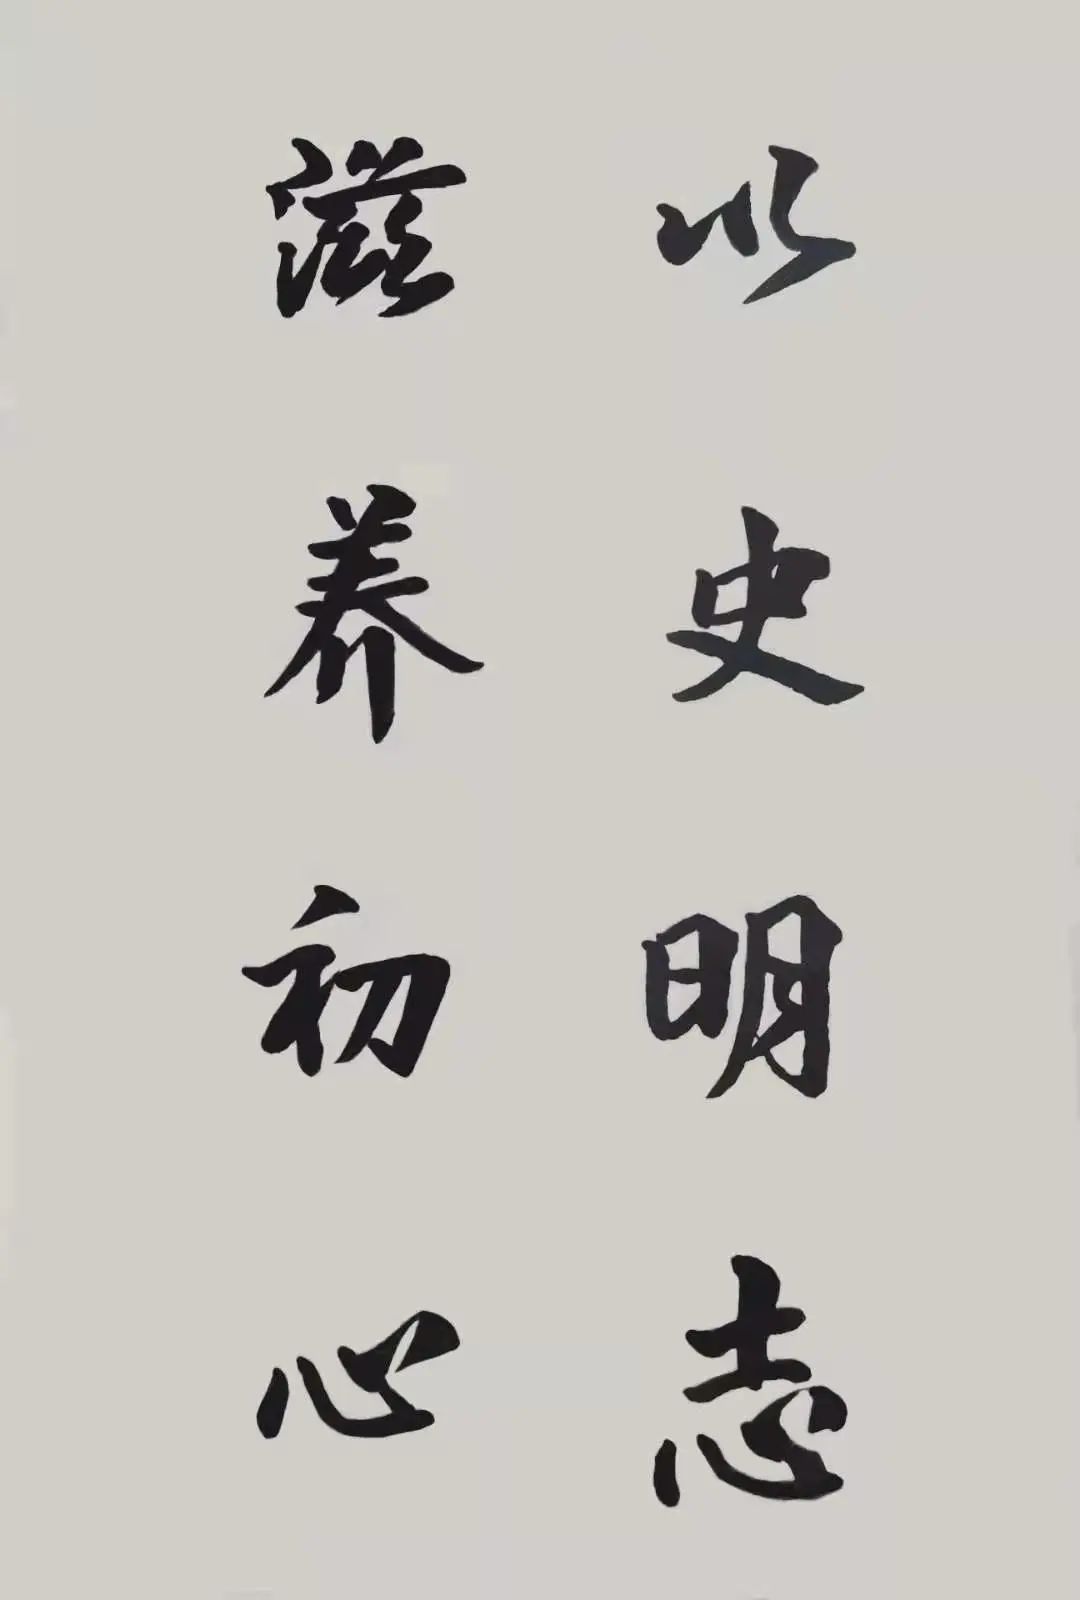 以史明志
滋养初心